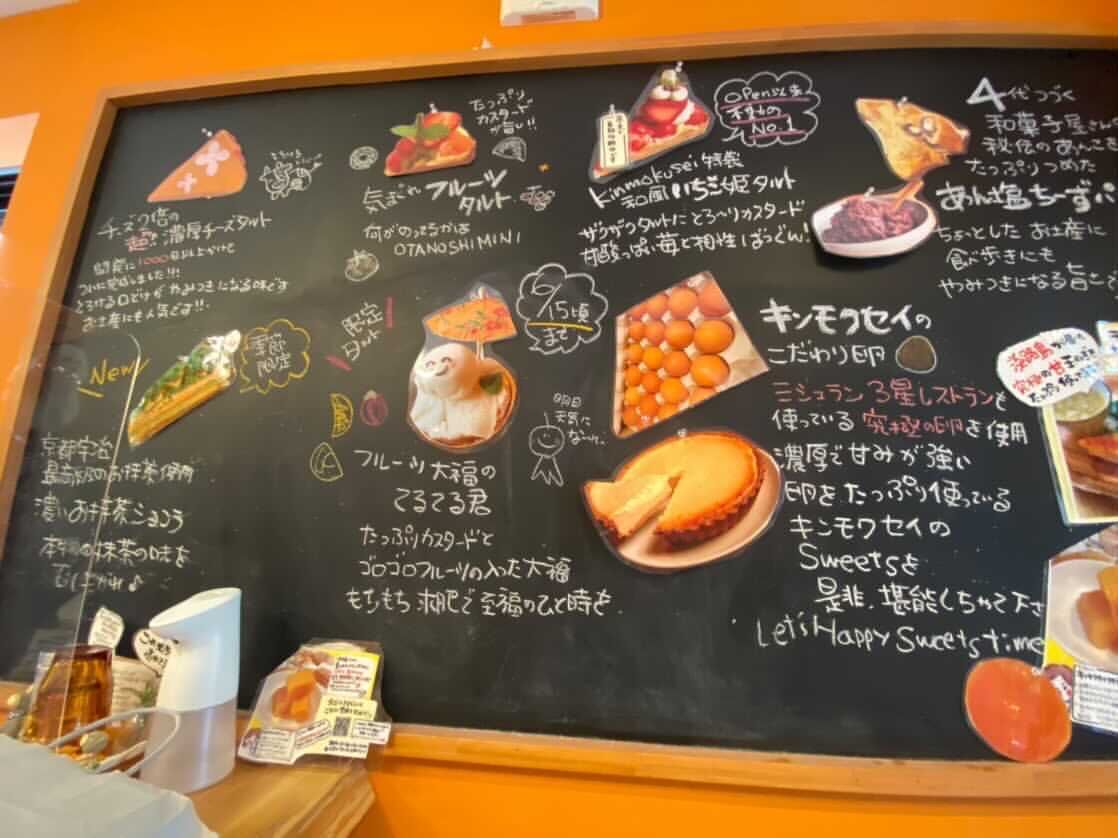 チーズ7倍の
超濃厚チーズタルト
開発に1000日以上かけて
ついに完成しました!!!
とろける口どけがやみつきになる味です
お土産にも人気です!!
たっぷり
カスタードが
旨い!!
気まぐれフルーツ
タルト
何がのってるかは
OTANOSHIMINI
Open以来
不動の
No.1
Kinmokusei特製
和風いちご姫タルト
ザクザクタルトにとろ〜りカスタード
甘酸っぱい苺と相性ばつぐん!
4代つづく
和菓子屋さん
秘伝のあんこを
たっぷりつめた
あん塩ちーず
ちょっとしたお土産に
食べ歩きにも
やみつきになる旨
New
季節
限定
京都宇治
最高級のお抹茶使用
濃いお抹茶ショコラ
本物の抹茶の味を
限定
タルト
6/15頃
まで
明日
天気に
なーれ
フルーツ大福の
てるてる君
たっぷりカスタードと
ゴロゴロフルーツの入った大福
もちもち求肥で至福のひと時を
キンモクセイの
こだわり卵
ミシュラン3星レストランも
使っている究極の卵を使用
濃厚で甘みが強い
卵をたっぷり使っている
キンモクセイの
Sweetsを
是非、堪能しちゃって下さ
Let's Happy Sweets time
淡路島
究極の甘